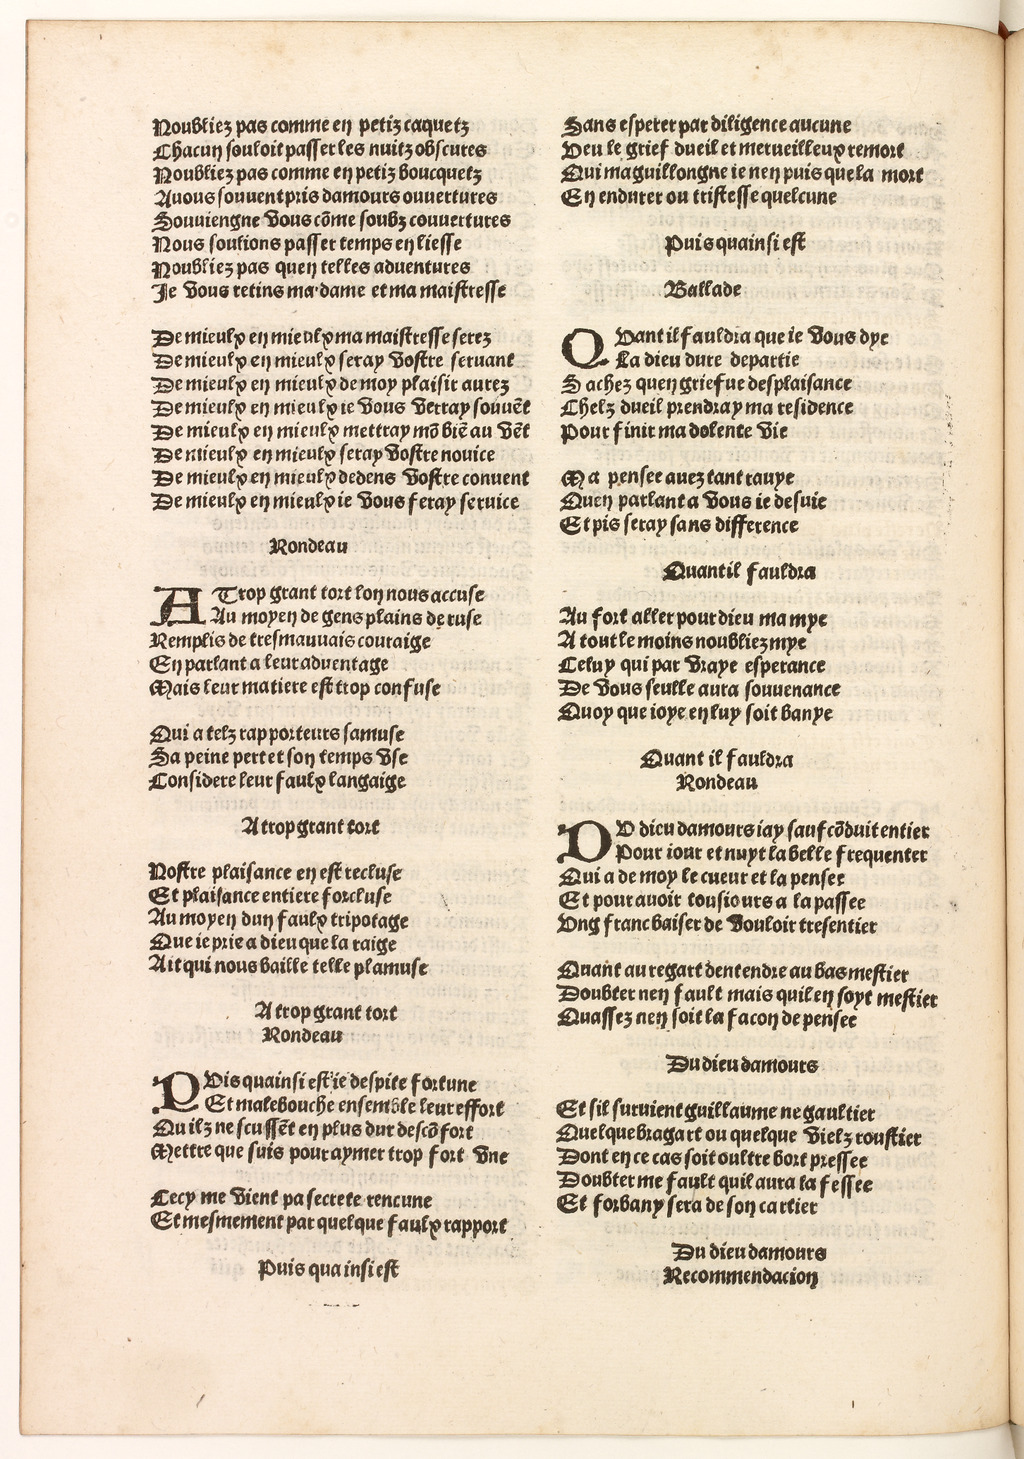 Noubliez pas comme en petiz caquetz
Chacun souloit passer les nuitz obscures
Noubliez pas comme en petiz boucquetz
Auous souuent pris damours ouuertures
Souuiengne vous cõme soubz couuertures
Nous soulions passer temps en liesse
Noubliez pas quen telles aduentures
Je vous retins ma dame et ma maistresse
De mieulx en mieulx ma maistresse serez
De mieulx en mieulx seray vostre seruant
De mieulx en mieulx de moy plaisir aurez
De mieulx en mieulx ie vous verray souuẽt
De mieulx en mieulx mettray mõ biẽ au vẽt
De mieulx en mieulx seray vostre nouice
De mieulx en mieulx dedens vostre conuent
De mieulx en mieulx ie vous feray seruice
Rondeau
A Trop grant tort lon nous accuse
Au moyen de gens plains de ruse
Remplis de tresmauuais couraige
En parlant a leur aduentage
Mais leur matiere est trop confuse
Qui a telz rapporteurs samuse
Sa peine pert et son temps vse
Considere leur faulx langaige
A trop grant tort
Nostre plaisance en est recluse
Et plaisance entiere forcluse
Au moyen dun faulx tripotage
Que ie prie a dieu que la raige
Ait qui nous baille telle plamuse
A trop grant tort
Rondeau
PVis quainsi est ie despite fortune
Et malebouche ensemble leur effort
Quilz ne scussẽt en plus dur descõfort
Mettre que suis pour aymer trop fort vne
Cecy me vient pa secrete rencune
Et mesmement par quelque faulx rapport
Puis qua insi est
Sans esperer par diligence aucune
Veu le grief dueil et merueilleux remort
Qui maguillongne ie nen puis que la mort
En endurer ou tristesse quelcune
Puis quainsi est
Ballade
QVant il fauldra que ie vous dye
La dieu dure departie
Sachez quen griefue desplaisance
Chelz dueil prendray ma residence
Pour finir ma dolente vie
Ma pensee auez tant rauye
Quen parlant a vous ie desuie
Et pis seray sans difference
Quant il fauldra
Au fort aller pour dieu ma mye
A tout le moins noubliez mye
Celuy qui par vraye esperance
De vous seulle aura souuenance
Quoy que ioye en luy soit banye
Quant il fauldra
Rondeau
DV dieu damours iay sauf cõduit entier
Pour iour et nuyt la belle frequenter
Qui a de moy le cueur et la pensee
Et pour auoir tousiours a la passee
Vng franc baiser de vouloir tresentier
Quant au regart dentendre au bas mestier
Doubter nen fault mais quil en soyt mestier
Quassez nen soit la facon de pensee
Du dieu damours
Et sil suruient guillaume ne gaultier
Quelque bragart ou quelque vielz roustier
Dont en ce cas soit oultre bort pressee
Doubter me fault quil aura la fessee
Et forbany sera de son cartier
Du dieu damours
Recommendacion